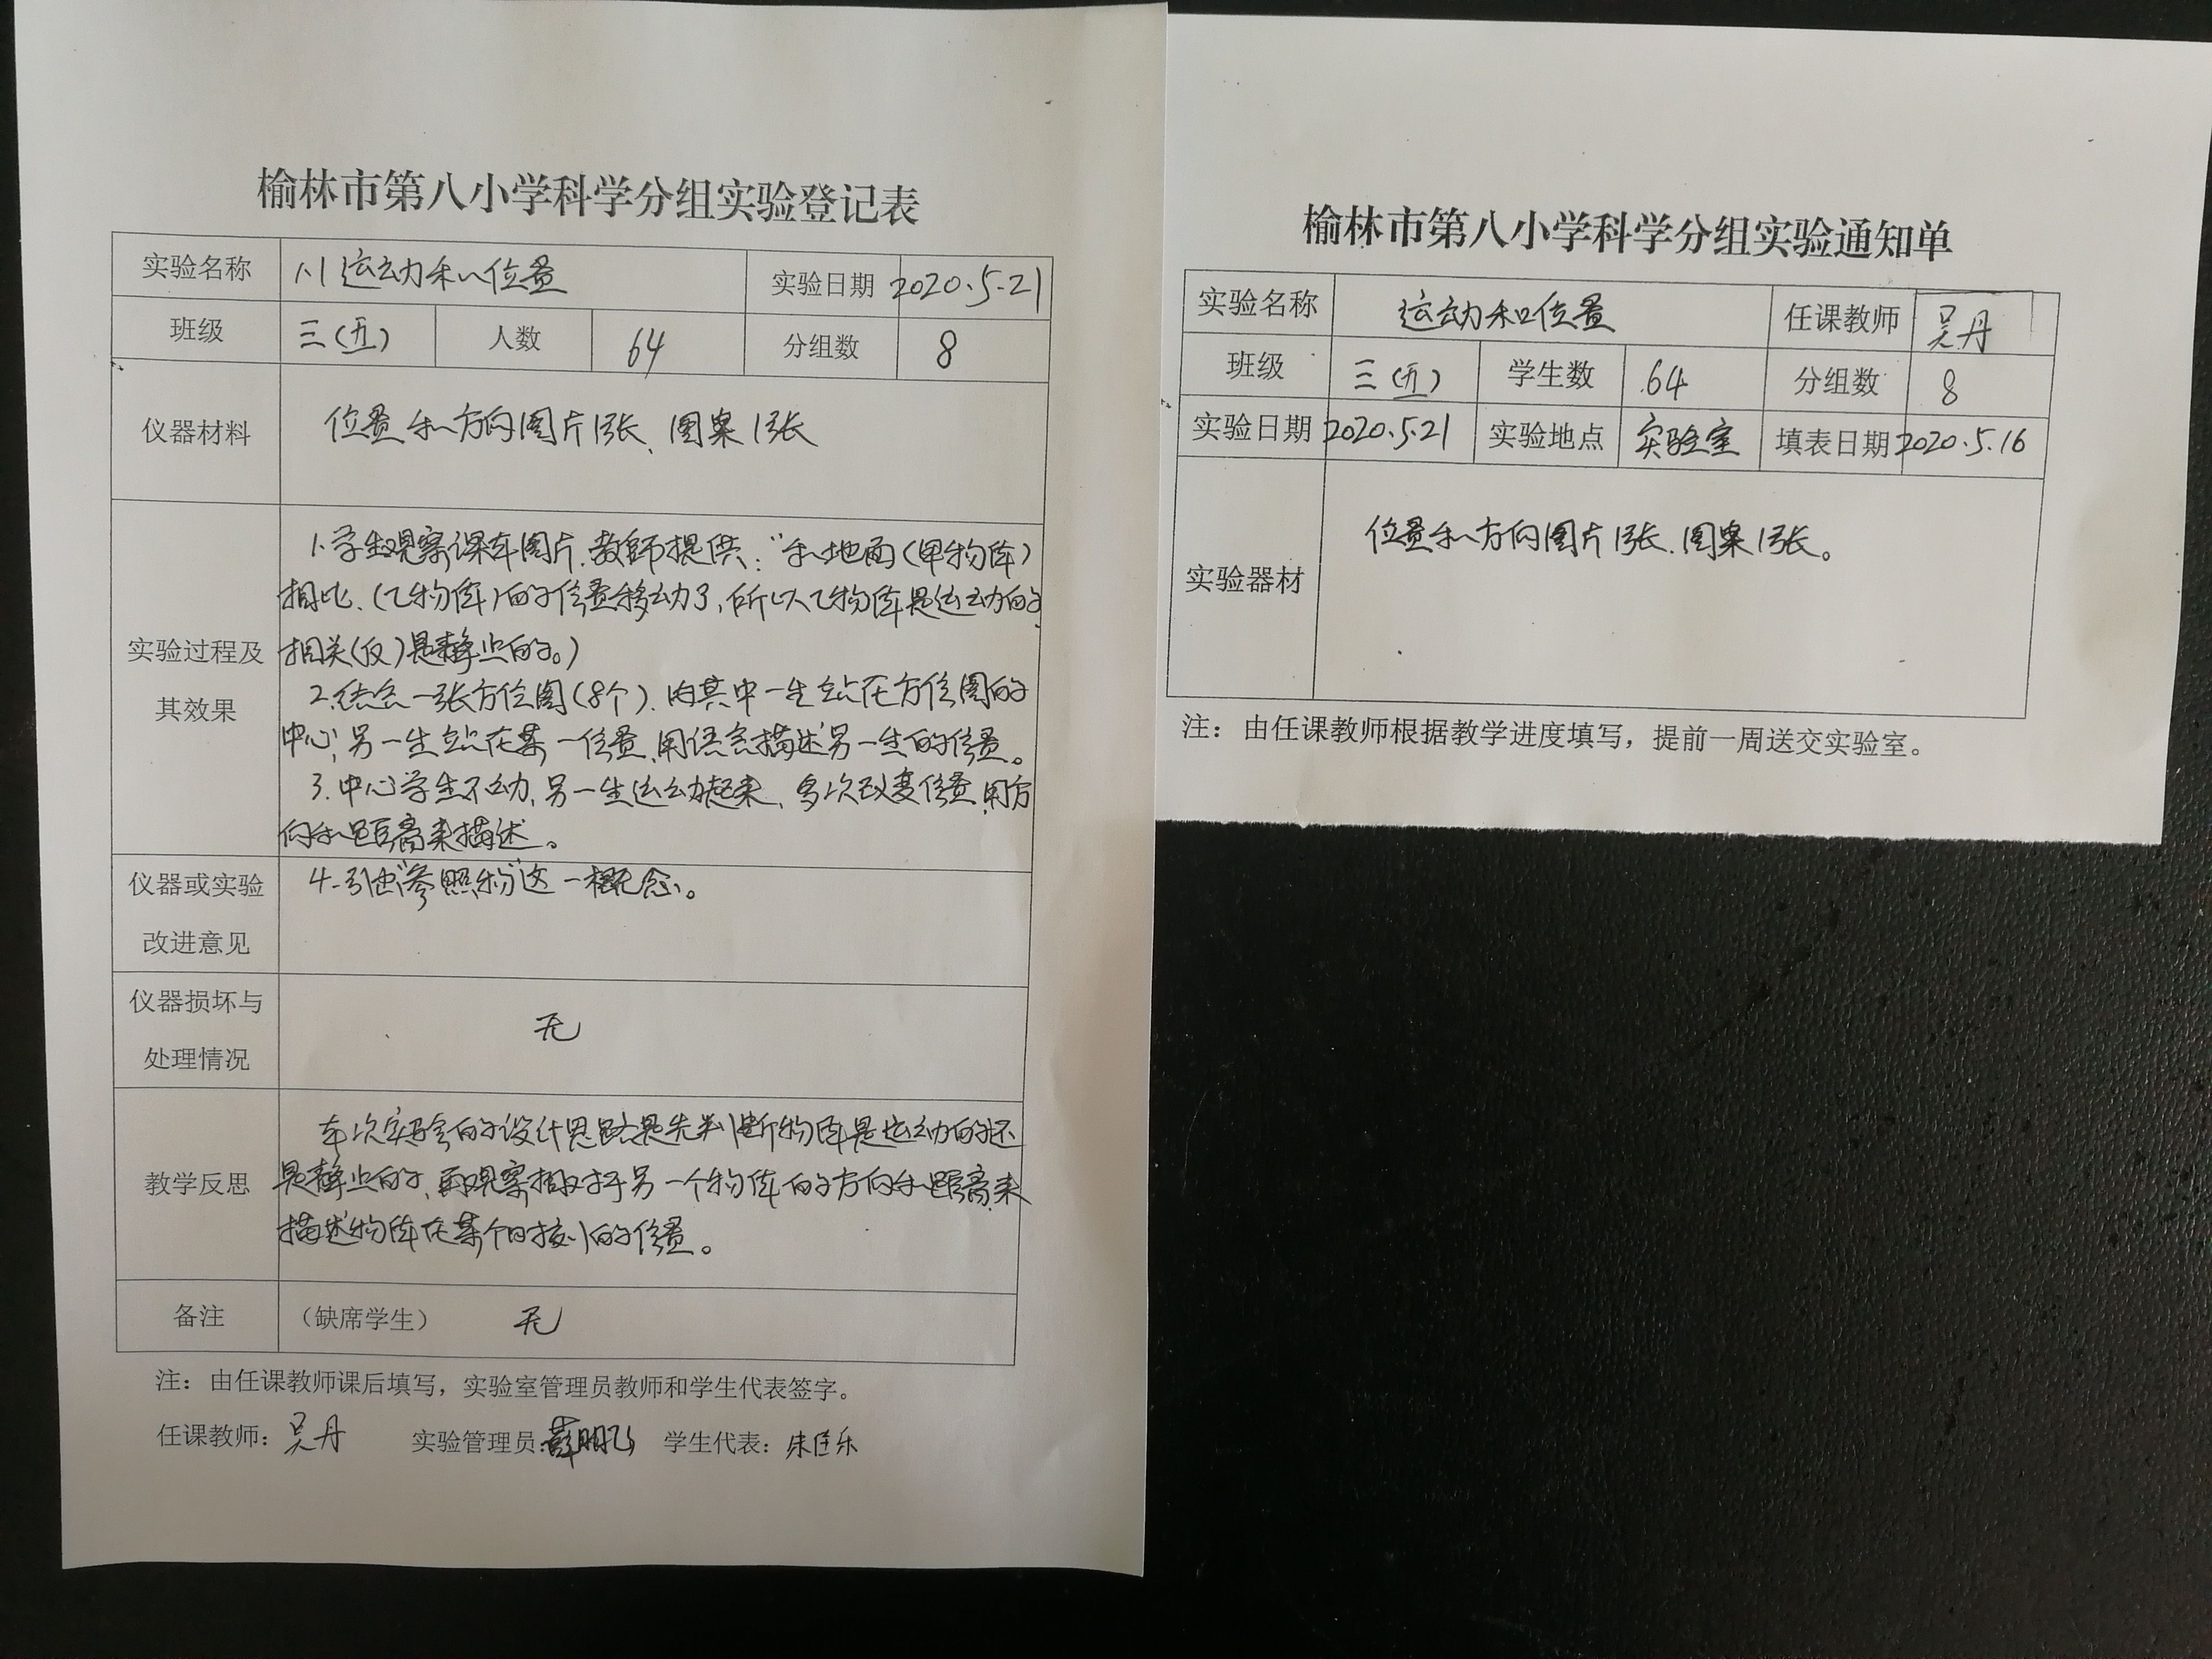 榆林市第八小学科学分组实验登记表
实验名称 1.1 运动和位置 实验日期 2020.5.21
班级 三(五) 人数 64 分组数 8
仪器材料 位置和方向图片1张、图案1张
1.学生观察课本图片.教师提供:"和地面(甲物体)
相比、(乙物体)的位置移动了,所以乙物体是运动的.
实验过程及 相关(反)是静止的。)
其效果
2.结合一张方位图(8个).由其中一生站在方位图的
中心,另一生站在某一位置,用语言描述另一生的位置。
3.中心学生不动,另一生运动起来,多次改变位置,用方
向和距离来描述。
仪器或实验 4.引出"参照物"这一概念。
改进意见
仪器损坏与
无
处理情况
本次实验的设计思路是先判断物体是运动的还
教学反思 是静止的,再观察相对于另一个物体的方向和距离来
描述物体在某个时刻的位置。
备注 (缺席学生) 无
注:由任课教师课后填写,实验室管理员教师和学生代表签字。
任课教师:吴丹 实验管理员:薛鹏飞 学生代表:朱佳乐
榆林市第八小学科学分组实验通知单
实验名称 运动和位置 任课教师 吴丹
班级 三(五) 学生数 64 分组数 8
实验日期 2020.5.21 实验地点 实验室 填表日期 2020.5.16
位置和方向图片1张.图案1张。
实验器材
注:由任课教师根据教学进度填写,提前一周送交实验室。